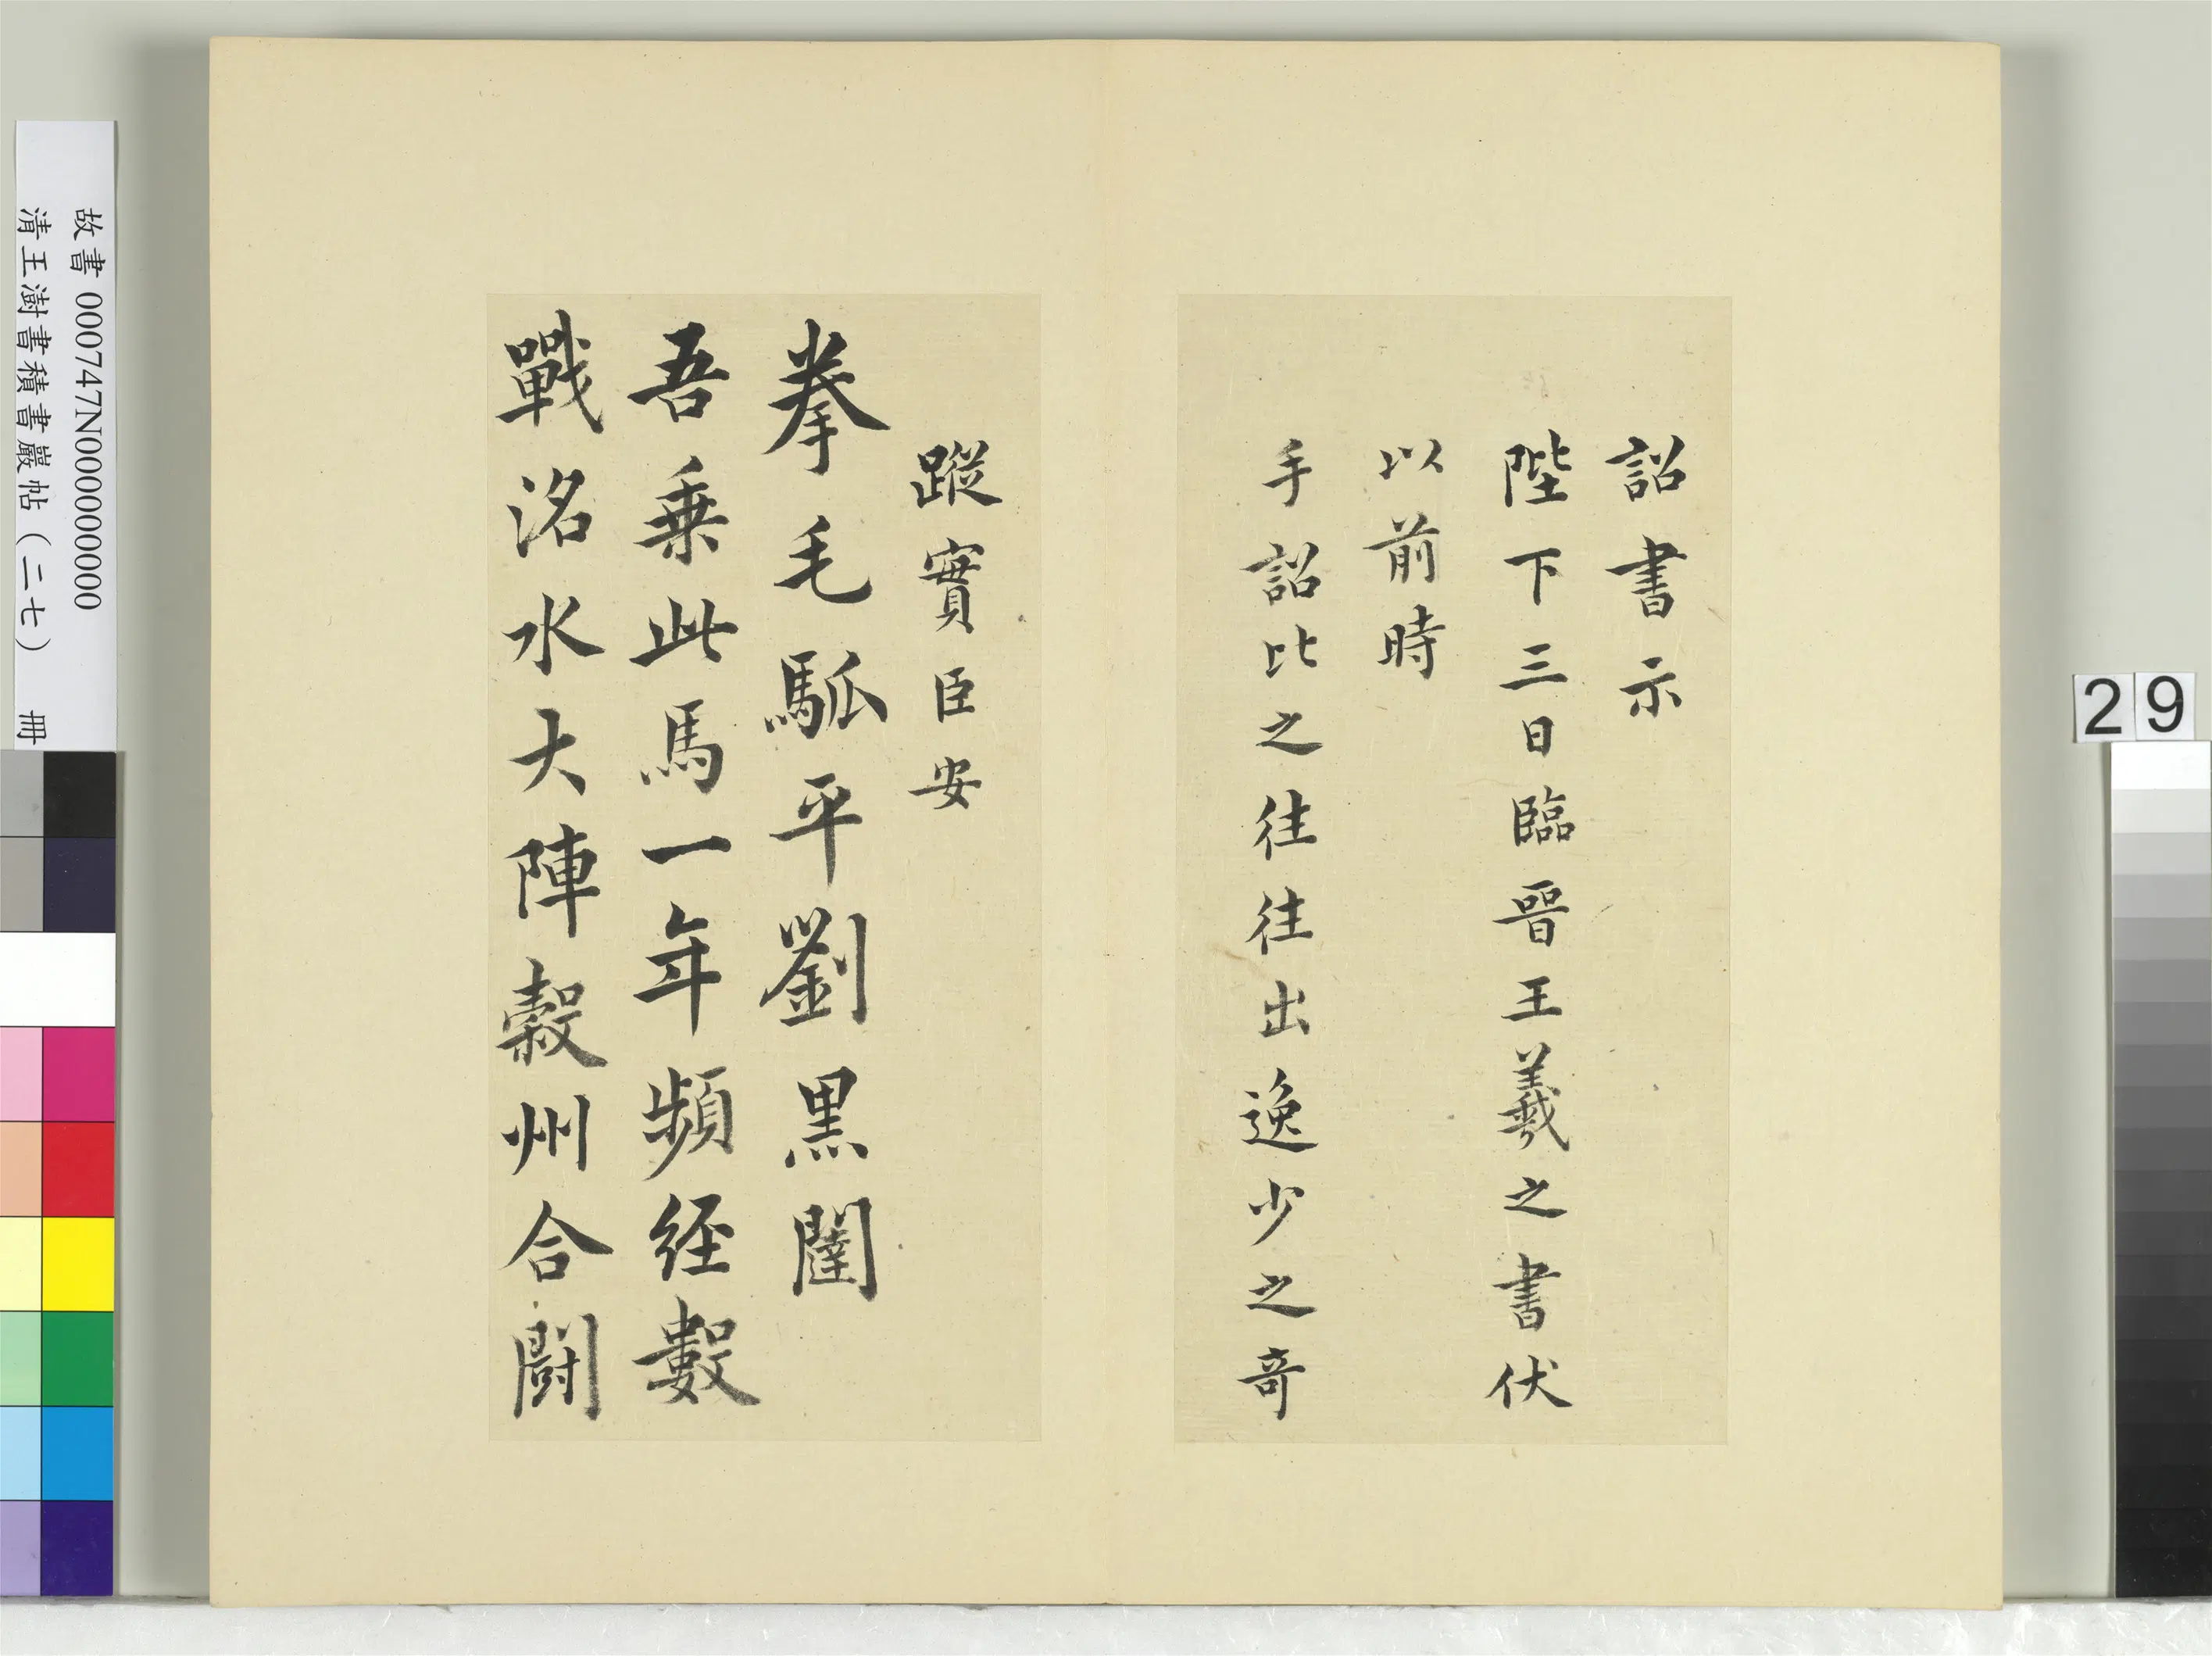 詔書示
陛下三日臨晉王羲之書伏
以前時
手詔比之往往出逸少之奇
蹤實臣安
拳毛騧平劉黑闥
吾乗此馬一年頻経數
戰洺水大陣穀州合鬪
故書 000747N000000000
清王澍書積書巖帖(二七) 冊
29